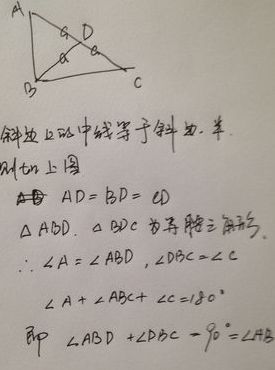 A
a D
a a
B C
斜边上的中线等于斜边一半
则如上图
AD=BD=CD
△ABD.△BDC为等腰三角形.
∴∠A=∠ABD,∠DBC=∠C
∠A+∠ABC+∠C=180°
即 ∠ABD+∠DBC=90°=∠AB